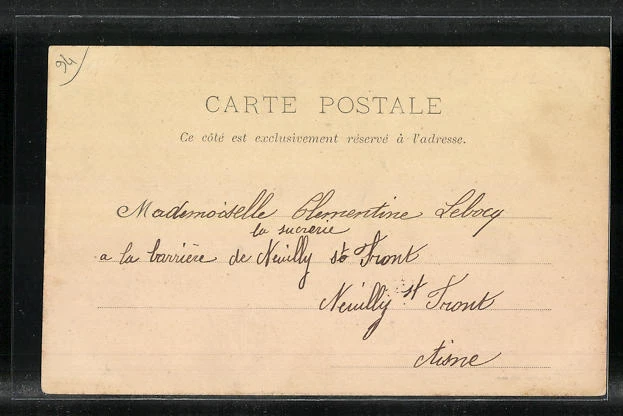 94
CARTE POSTALE
Ce côté est exclusivement réservé à l'adresse.
Mademoiselle Clementine Lebocq
la sucrerie
a la barrière de Neuilly st Front
Neuilly st Front
Aisne